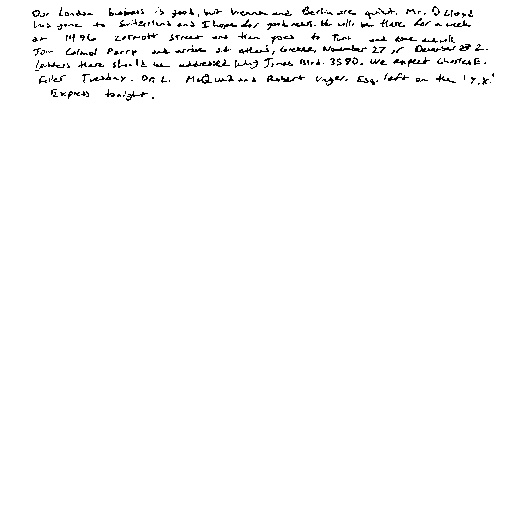 Our London business is good, but Vienna and Berlin are quiet. Mr. D Lloyd
has gone to Switzerland and I hope for good news. He will be there for a week
at 1496 Zermott Street and then goes to Turin and Rome and will
Join Colonel Parry and arrive at Athens, Greece, November 27 or December 2.
Letters there should be addressed King James Blvd. 3580. We expect Charles E.
Fuller Tuesday. Dr. L. McQuaid and Robert Unger, Esq. left on the 'Y.X.'
Express tonight.